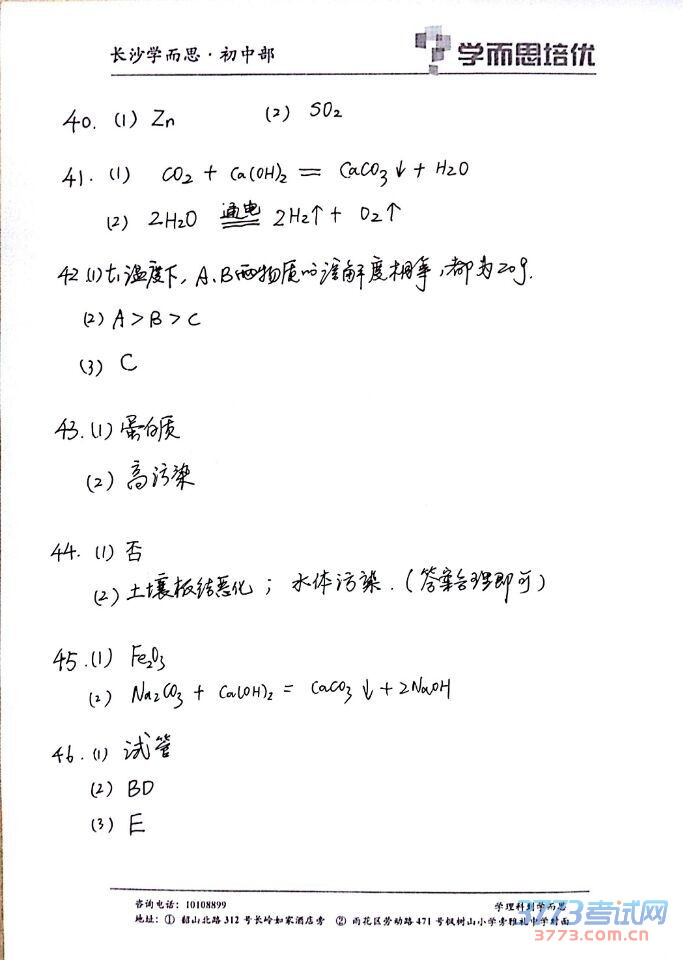 长沙学而思·初中部
学而思培优
40. (1) Zn (2) SO₂
41. (1) CO₂ + Ca(OH)₂ = CaCO₃↓ + H₂O
(2) 2H₂O 通电 2H₂↑ + O₂↑
42.(1) t₁温度下, A、B两物质的溶解度相等,都为20g.
(2) A > B > C
(3) C
43. (1) 蛋白质
(2) 高污染
44. (1) 否
(2) 土壤板结恶化; 水体污染. (答案合理即可)
45. (1) Fe₂O₃
(2) Na₂CO₃ + Ca(OH)₂ = CaCO₃↓ + 2NaOH
46. (1) 试管
(2) BD
(3) E
咨询电话: 10108899 学理科到学而思
地址: ① 韶山北路 312 号长岭如家酒店旁 ② 雨花区劳动路 471 号枫树山小学旁雅礼中学对面
3773考试网
3773.com.cn